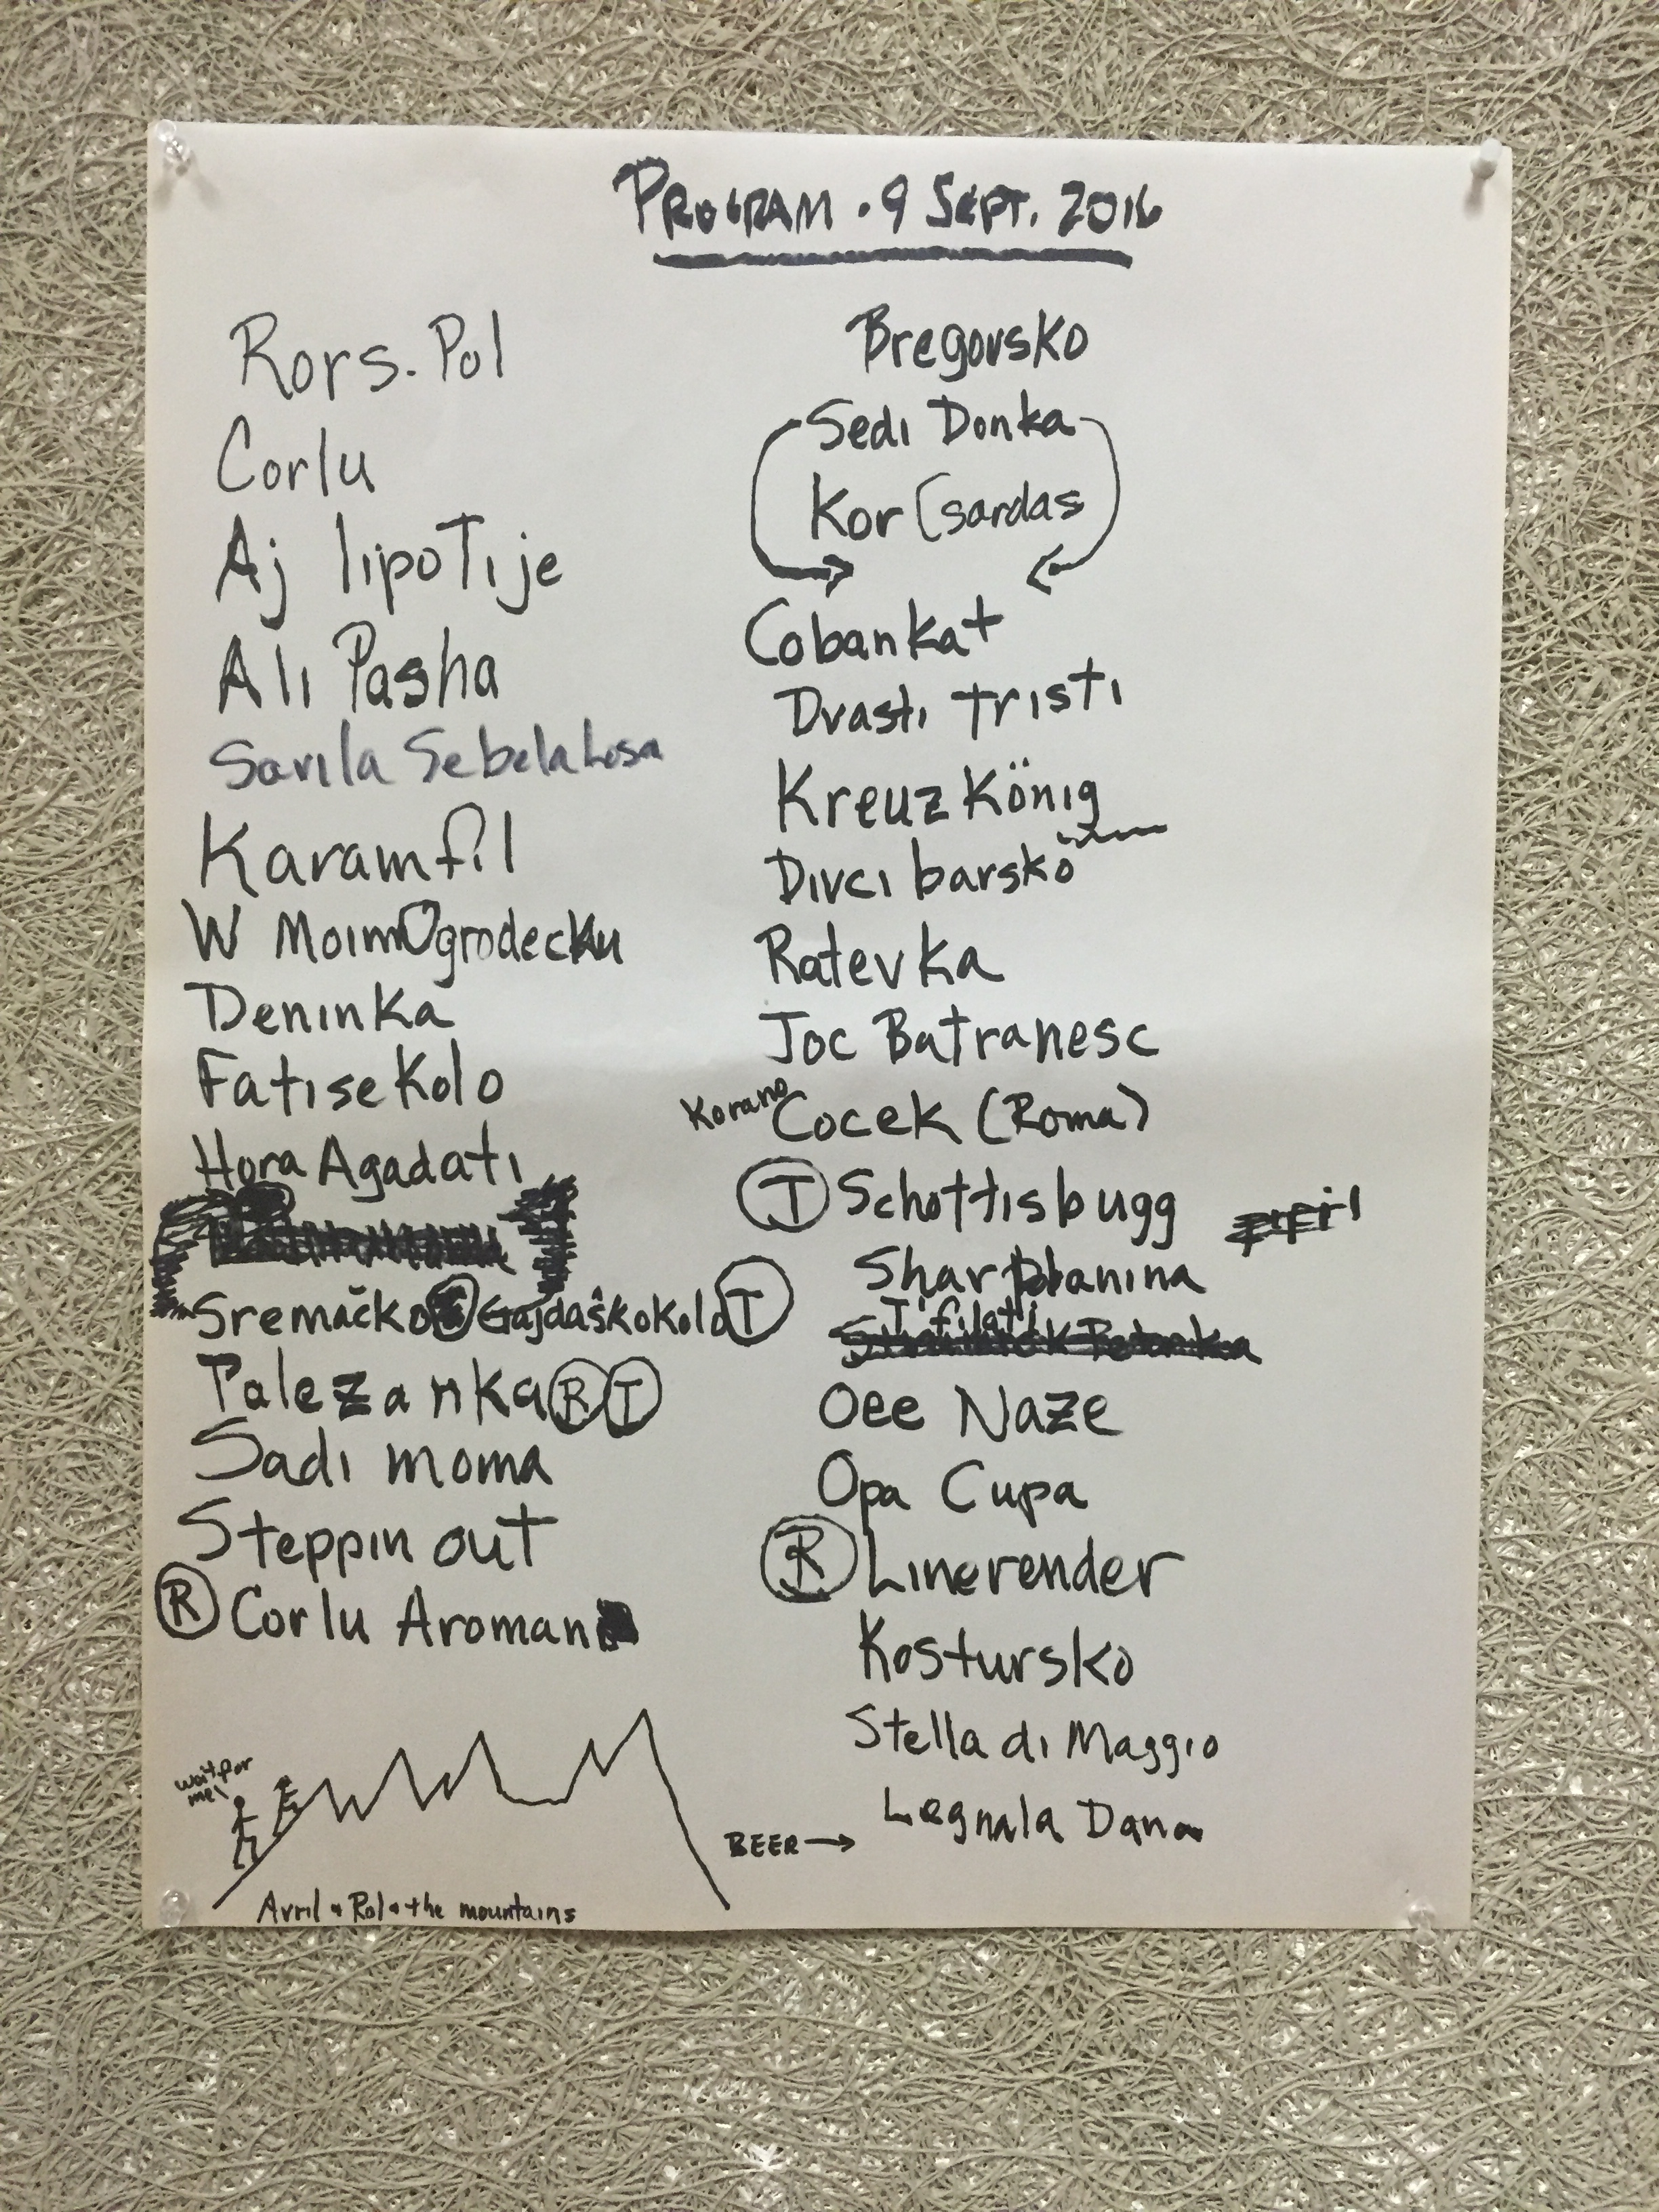 PROGRAM . 9 SEPT. 2016
Rors. Pol
Corlu
Aj lipoTije
Ali Pasha
Savila Sebela Losa
Karamfil
W Moim Ogrodecku
Deninka
Fatise Kolo
Hora Agadati
Sremačko Gajdaško Kolo T
Palezanka R T
Sadi moma
Steppin out
R Corlu Aroman
wait for
me!
Avril & Rol & the mountains
Bregovsko
Sedi Donka
Kor Csardas
Cobankat
Dvasti tristi
Kreuz König
Divci barsko
Ratevka
Joc Batranesc
Korano Cocek (Roma)
T Schottis bugg
Sharplanina
Tifilati
Oee Naze
Opa Cupa
R Linerender
Kostursko
Stella di Maggio
BEER → Legnala Dana